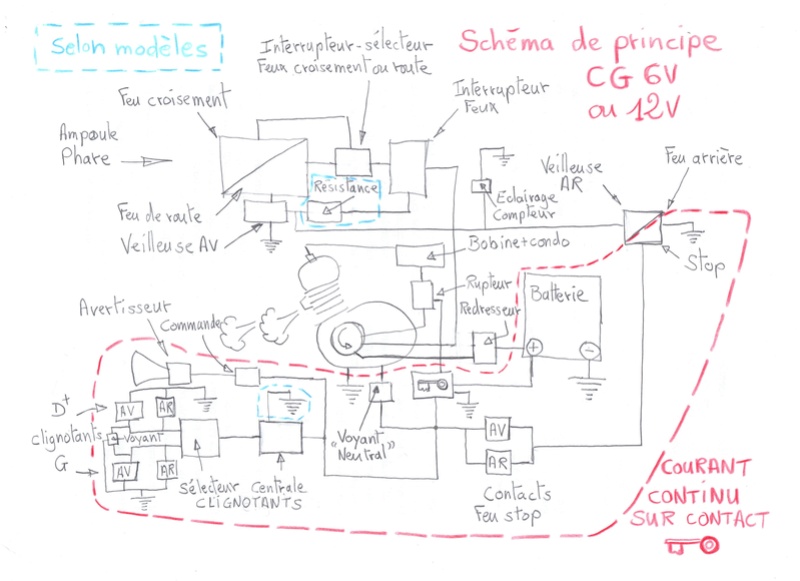 Selon modèles
Interrupteur-sélecteur
Feux croisement ou route
Schéma de principe
CG 6V
ou 12V
Feu croisement
Interrupteur
Feux
Ampoule
Phare
Résistance
Feu de route
Veilleuse AV
Eclairage
Compteur
Veilleuse
AR
Feu arrière
Stop
Bobine+condo
Rupteur
Redresseur
Batterie
+
-
Avertisseur
Commande
D+
clignotants
G
AV
AR
Voyant
AV
AR
Sélecteur Centrale
CLIGNOTANTS
"Voyant
Neutral"
AV
AR
Contacts
Feu stop
COURANT
CONTINU
SUR CONTACT